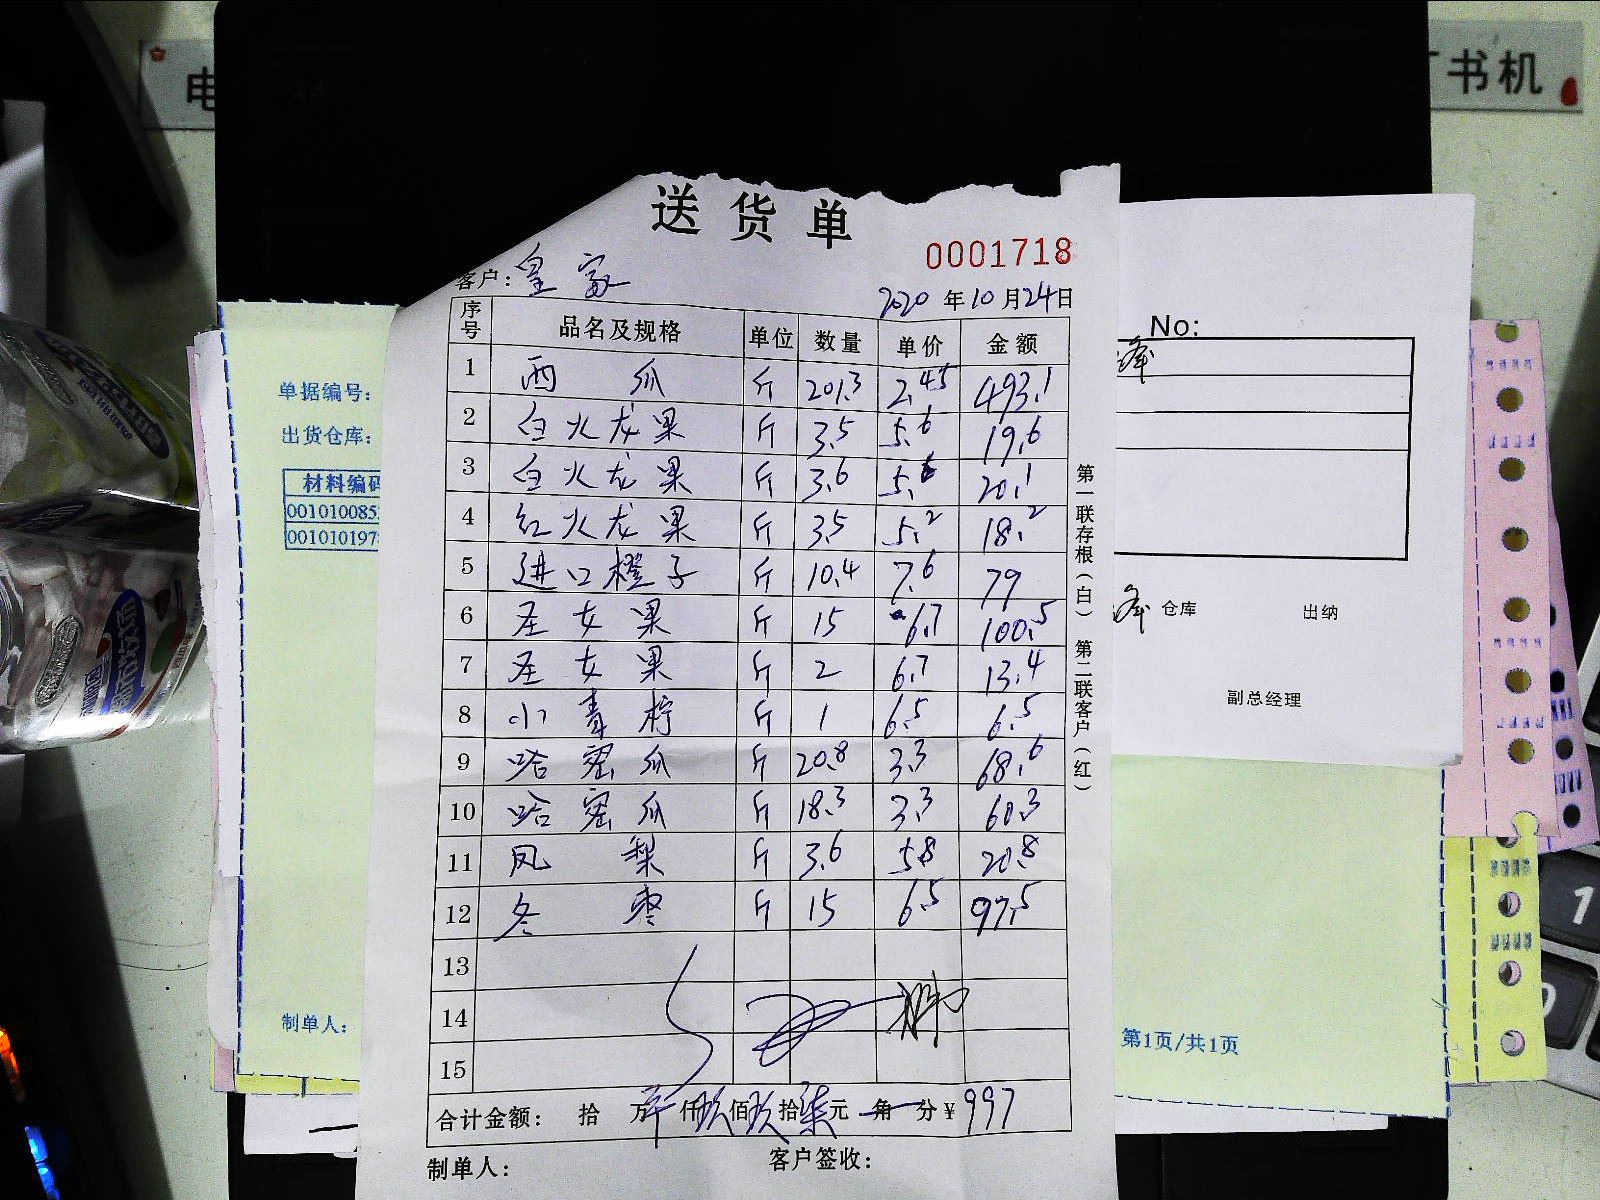 书机
送货单
0001718
客户：皇家
2020年10月24日
序号 品名及规格 单位 数量 单价 金额
1 西瓜 斤 201.3 2.45 493.1
2 白火龙果 斤 3.5 5.6 19.6
3 白火龙果 斤 3.6 5.6 20.1
4 红火龙果 斤 3.5 5.2 18.2
5 进口橙子 斤 10.4 7.6 79
6 圣女果 斤 15 6.7 100.5
7 圣女果 斤 2 6.7 13.4
8 小青柠 斤 1 6.5 6.5
9 哈密瓜 斤 20.8 3.3 68.6
10 哈密瓜 斤 18.3 3.3 60.3
11 凤梨 斤 3.6 5.8 20.8
12 冬枣 斤 15 6.5 97.5
13
14
15
合计金额： 拾 万 仟 玖 佰 玖 拾 柒 元 角 分 ¥ 997
制单人： 客户签收：
第一联存根（白） 第二联客户（红）
单据编号：
出货仓库：
材料编码
001010085
00101019
制单人：
No:
仓库 出纳
副总经理
第1页/共1页
1